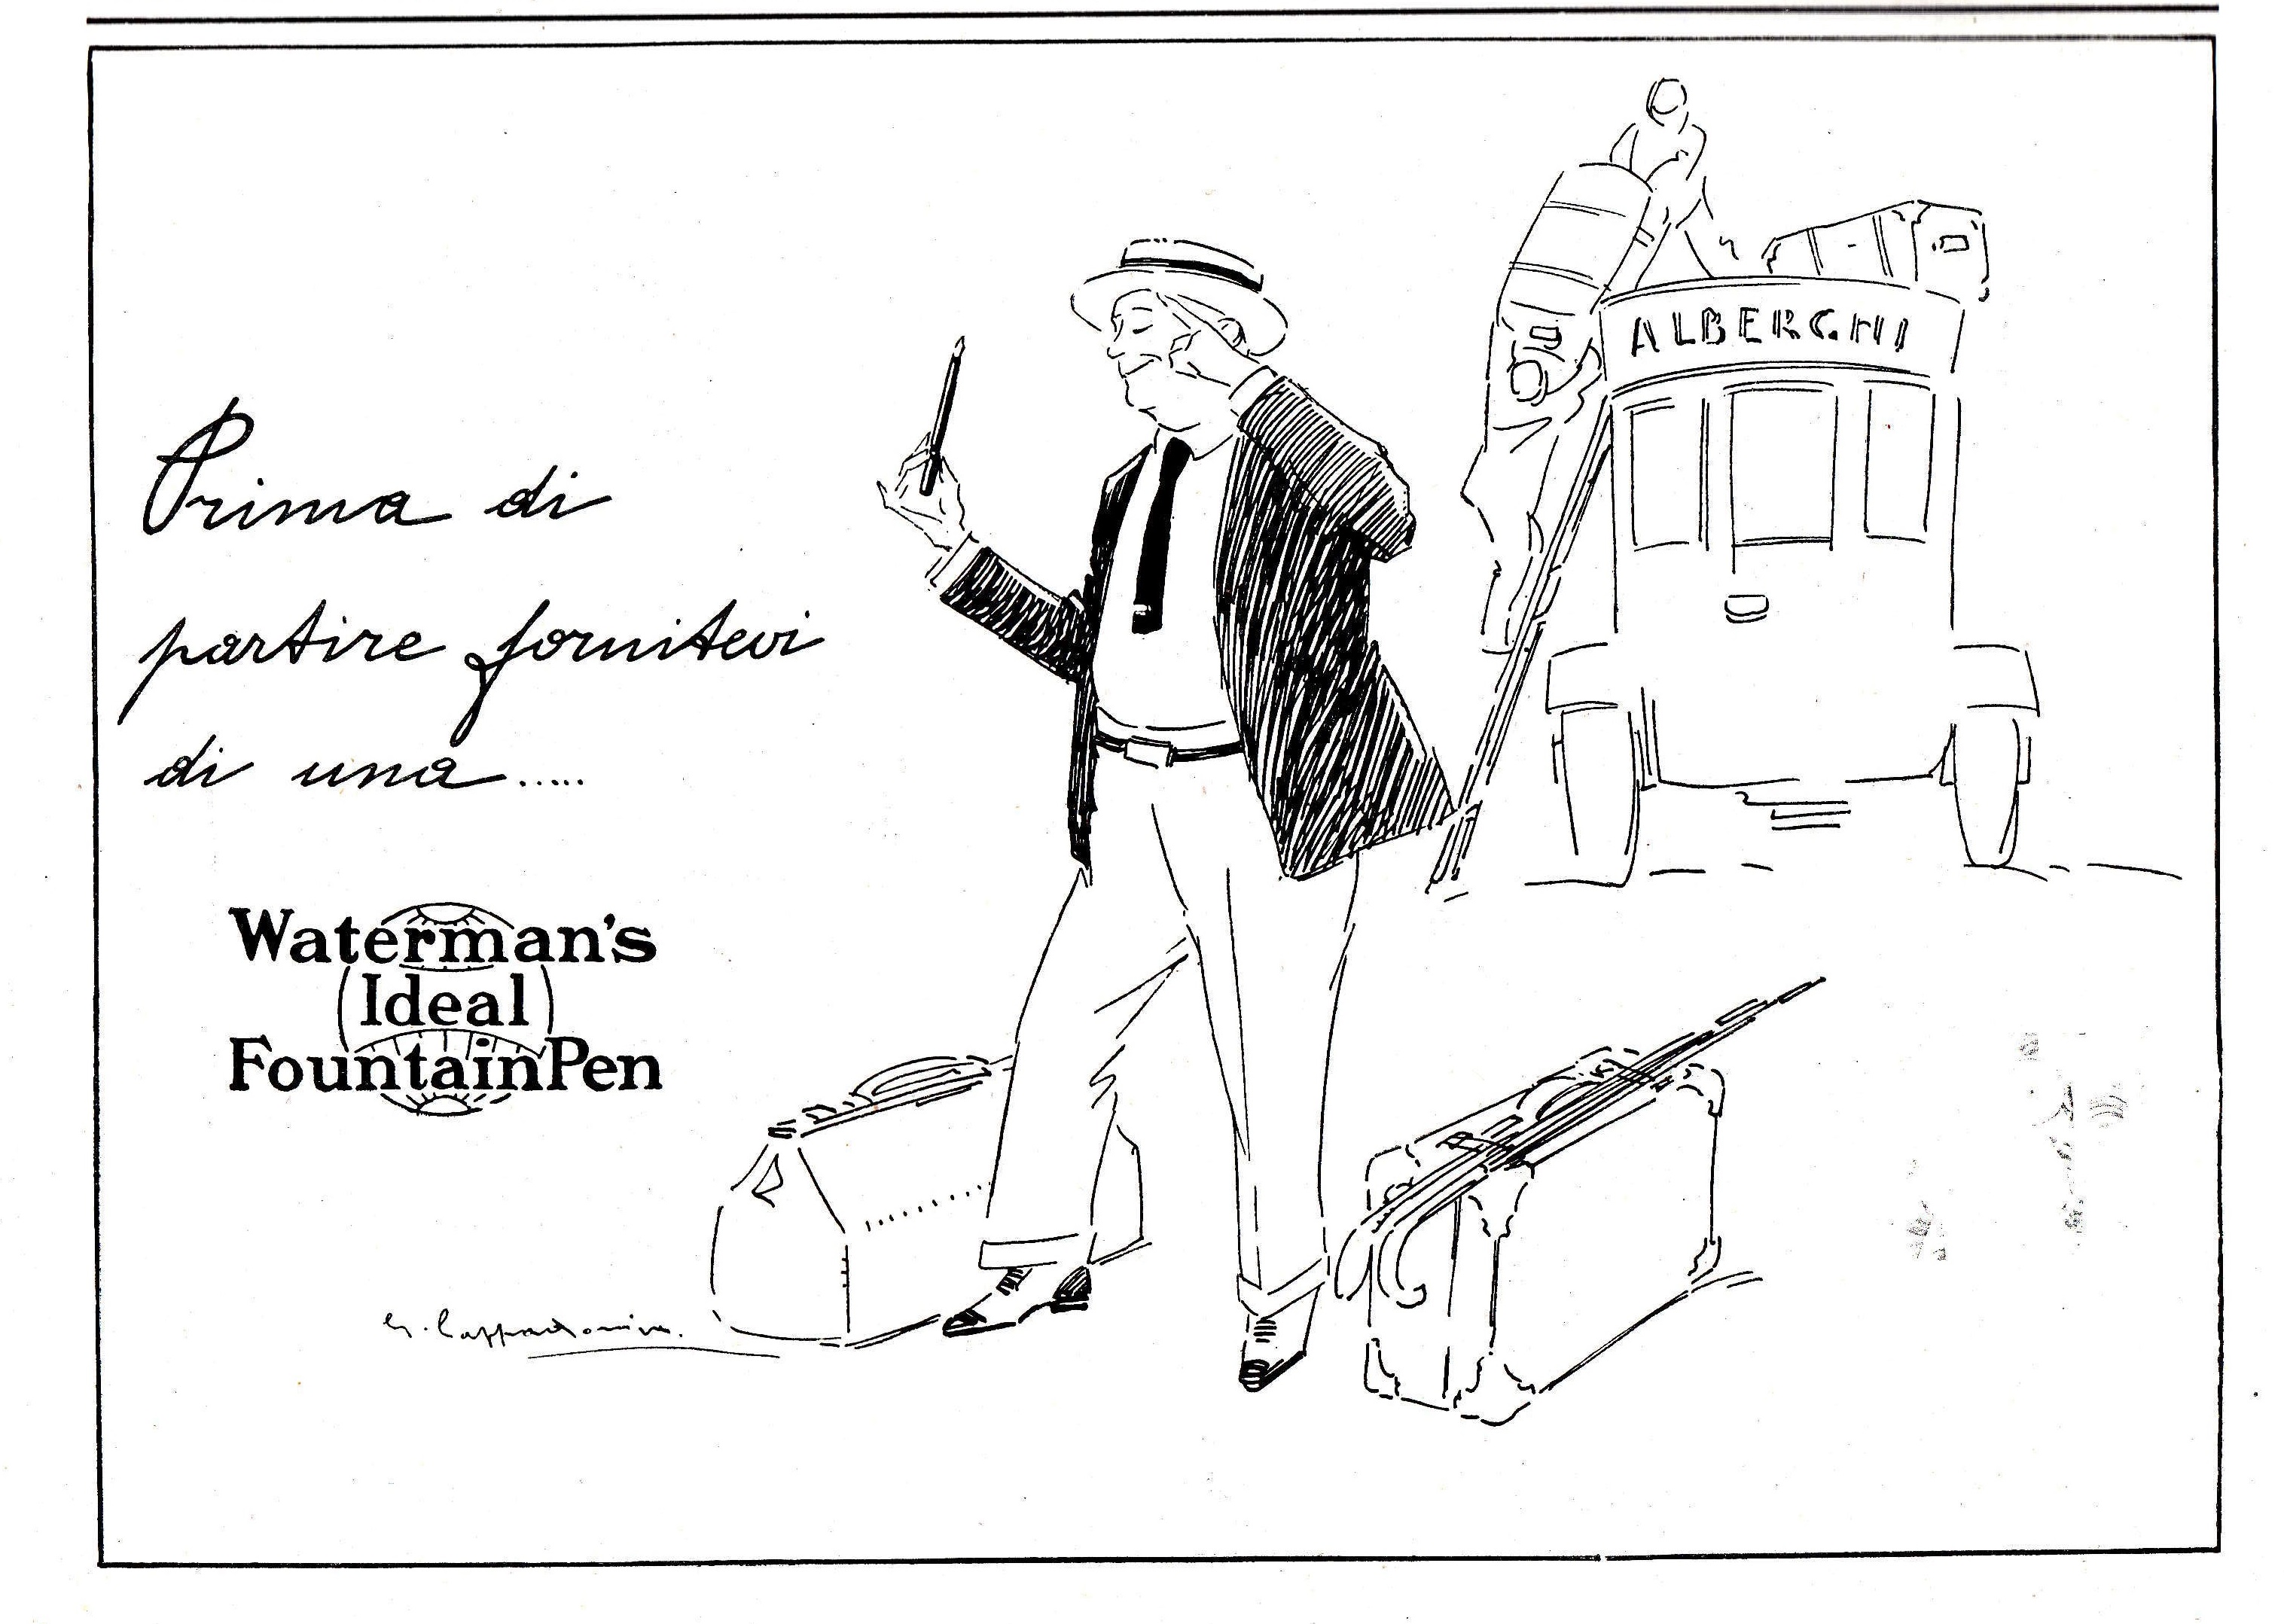 Prima di
partire fornitevi
di una.....
Waterman's
(Ideal)
Fountain Pen
ALBERGHI